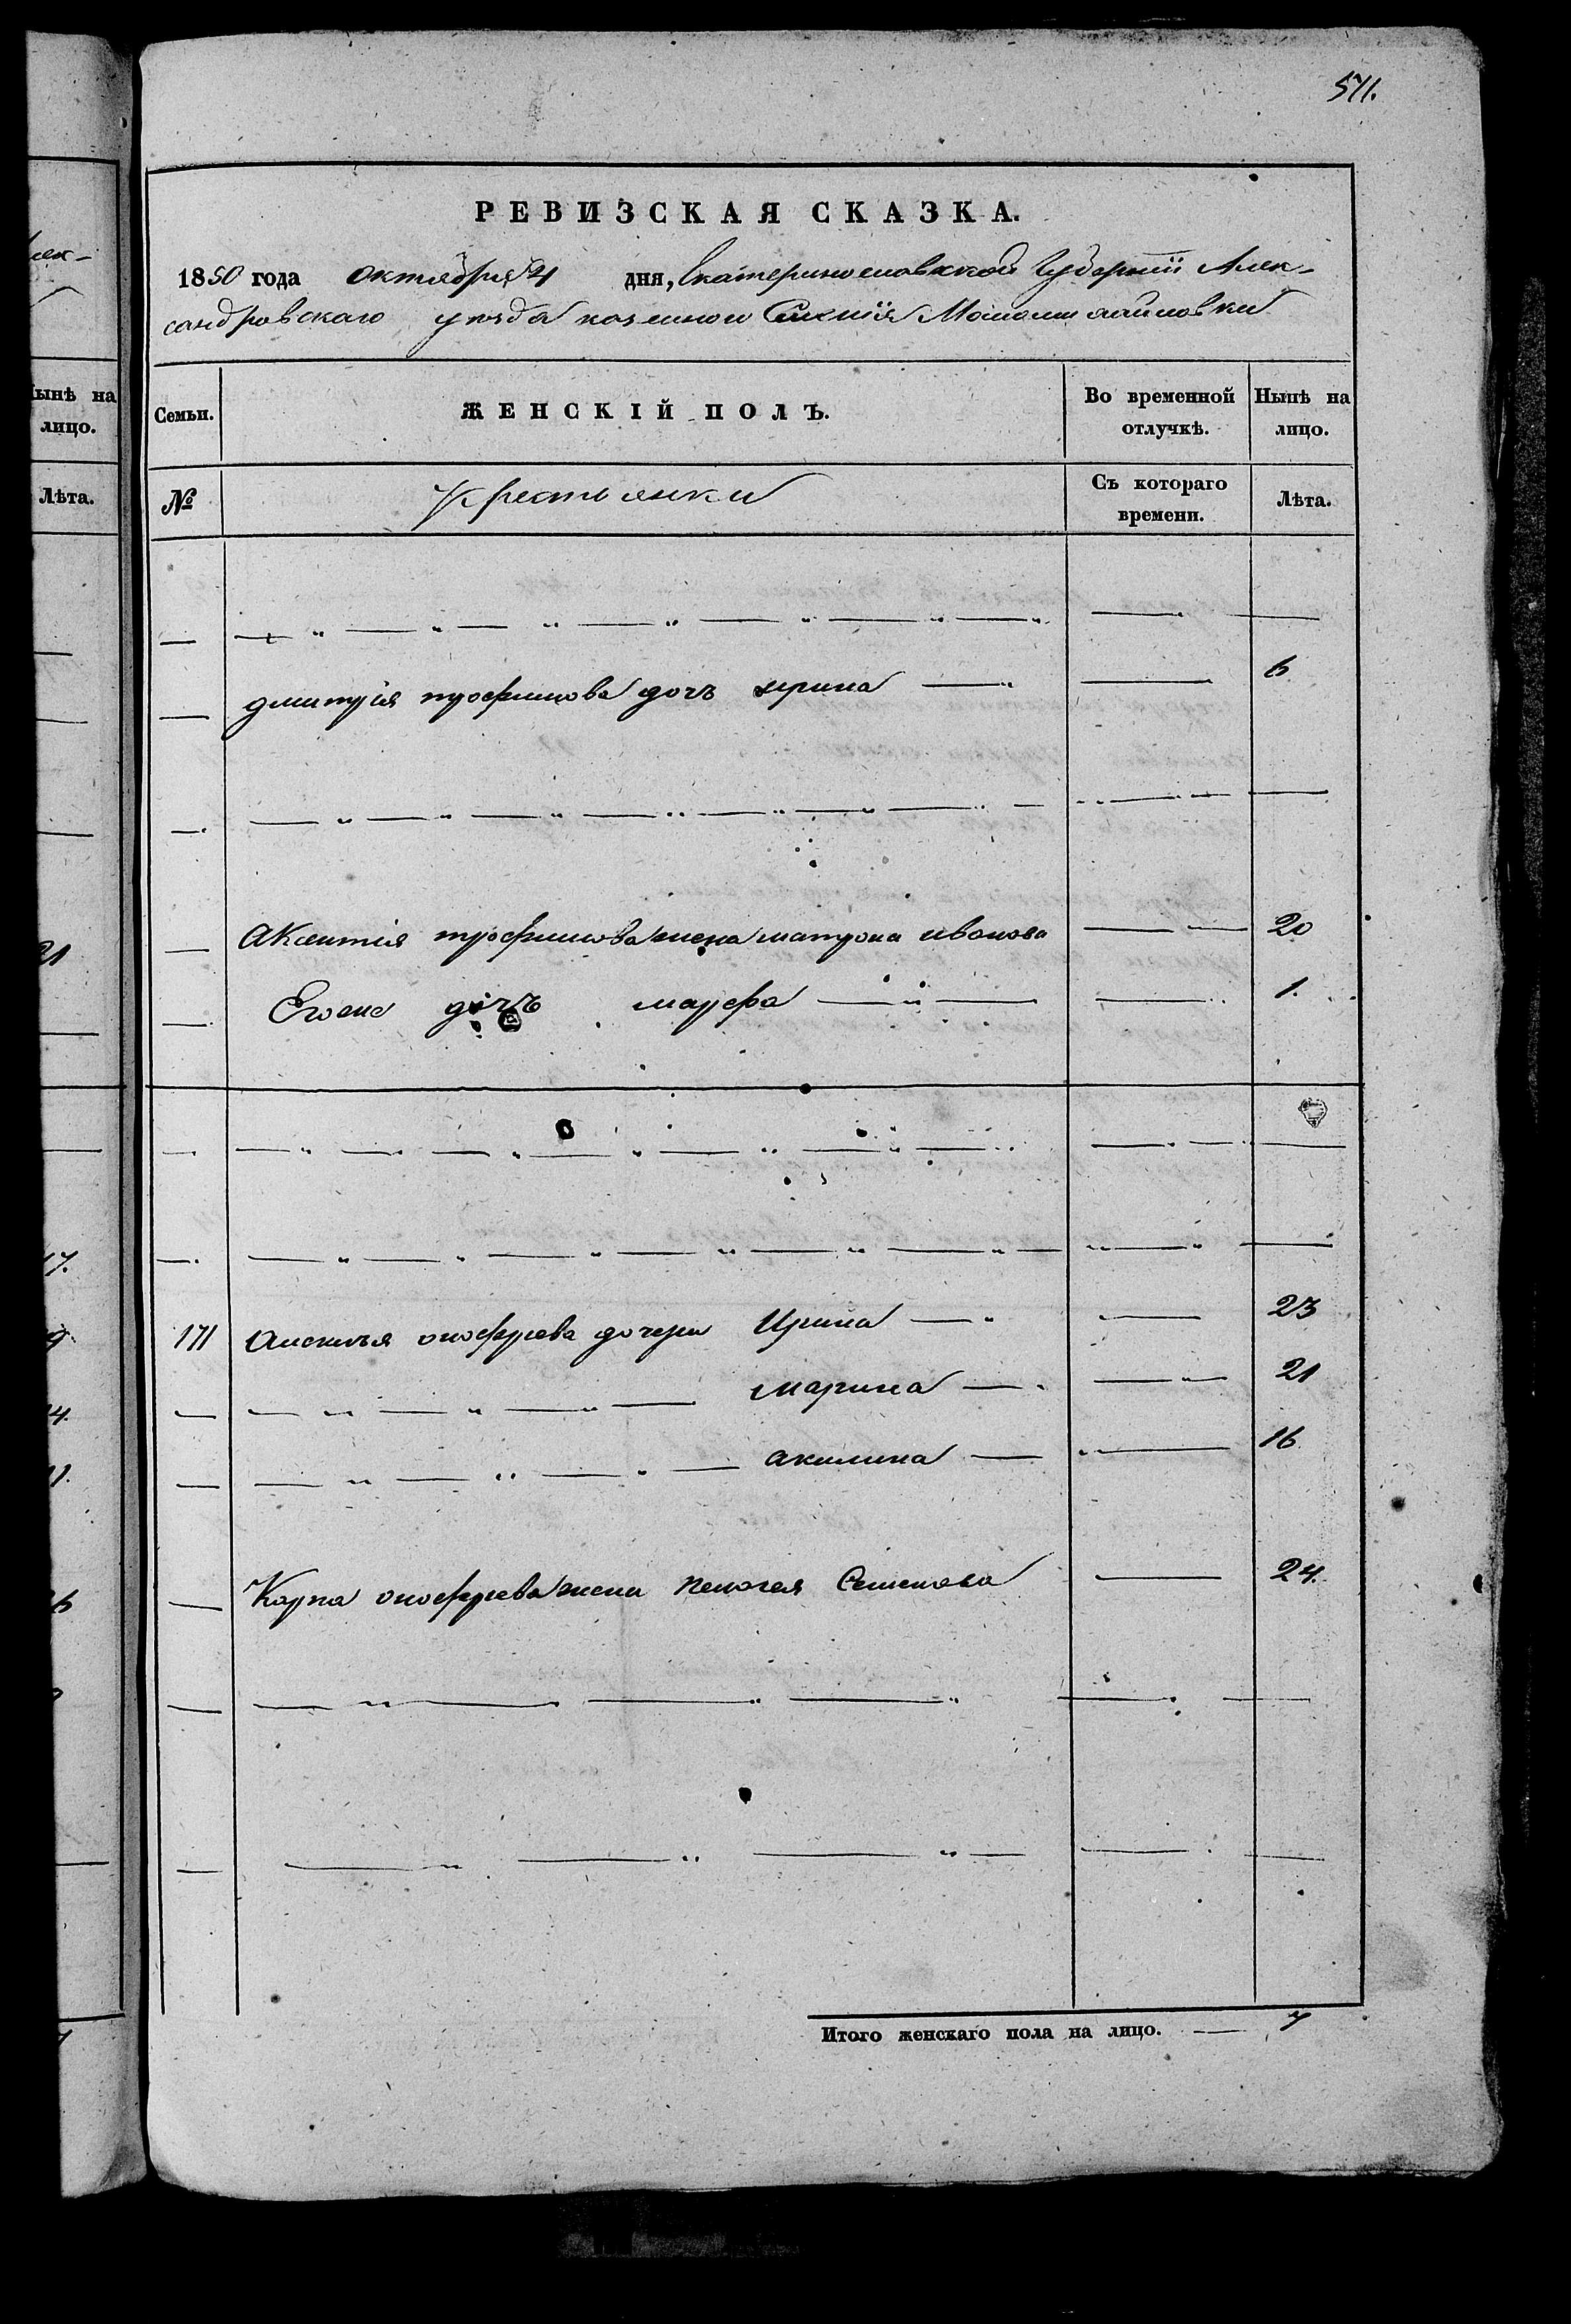 571.
РЕВИЗСКАЯ СКАЗКА.
1850 года октября 4 дня, Екатеринославской Губернии Алек-
сандровскаго уезда казенной Маломихайловки
Семьи. ЖЕНСКІЙ ПОЛЪ. Во временной отлучкѣ. Нынѣ на лицо.
№ Крестьянки Съ котораго времени. Лѣта.
дмитрія трофимова дочь ирина 6
Аксентія трофимова жена матрона иванова 20
Его дочь марфа 1.
171 онофріева дочери Ирина 23
марина 21
акилина 16
Карпа онофріева жена пелагея Семенова 24.
Итого женскаго пола на лицо. — 7
Нынѣ на
лицо.
Лѣта.